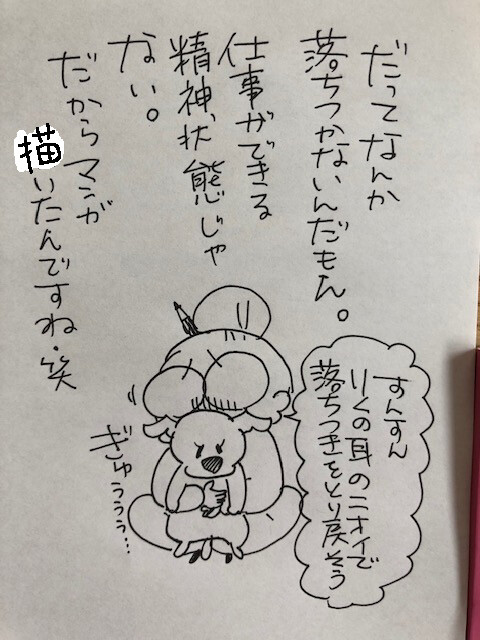 だってなんか
落ちつかないんだもん。
仕事ができる
精神状態じゃ
ない。
だからマンガ
描いたんですね・笑
すんすん
りくの耳のニオイで
落ちつきをとり戻そう
ぎゅぅぅぅ…